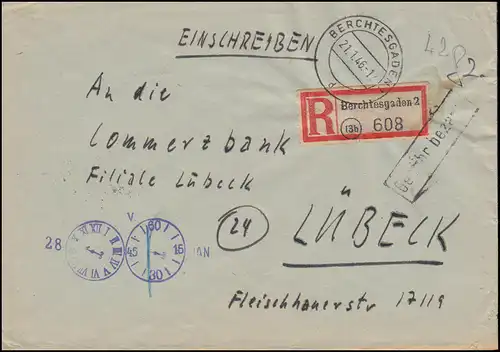 EINSCHREIBEN
BERCHTESGADEN
21.1.46-1
d
4282
R Berchtesgaden 2
(13b) 608
An die
Commerzbank
Filiale Lübeck
(24) LÜBECK
Fleischhauerstr 17/19
28 V. 60 15 30 45 JAN